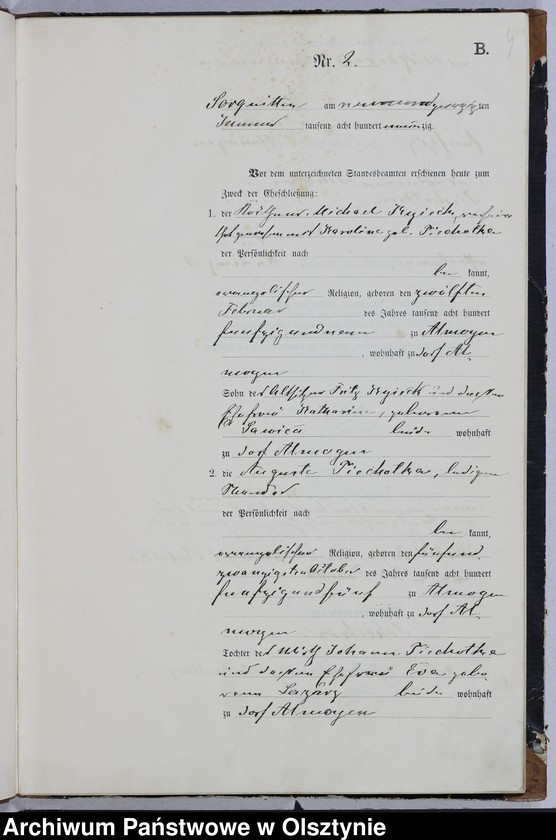 B.
4
Nr. 2.
Sorquitten am neunundzwanzigsten
Januar tausend acht hundert neunzig
Vor dem unterzeichneten Standesbeamten erschienen heute zum
Zweck der Eheschließung:
1. der Michael
Karoline geb. Piechotka
der Persönlichkeit nach
be kannt,
evangelischer Religion, geboren den zwölften
Februar des Jahres tausend acht hundert
fünfzigundneun zu Almoyen
, wohnhaft zu Dorf Al-
moyen
Sohn des Altsitzer Fritz und dessen
Ehefrau Katharine, geborene
Sawicka beide wohnhaft
zu Dorf Almoyen
2. die Auguste Piechotka, ledigen
Standes
der Persönlichkeit nach
be kannt,
evangelischer Religion, geboren den fünfund
zwanzigsten October des Jahres tausend acht hundert
fünfzigundfünf zu Almoyen
, wohnhaft zu Dorf Al-
moyen
Tochter des Wirth Johann Piechotka
und dessen Ehefrau Eva gebo-
rene beide wohnhaft
zu Dorf Almoyen
Archiwum Państwowe w Olsztynie